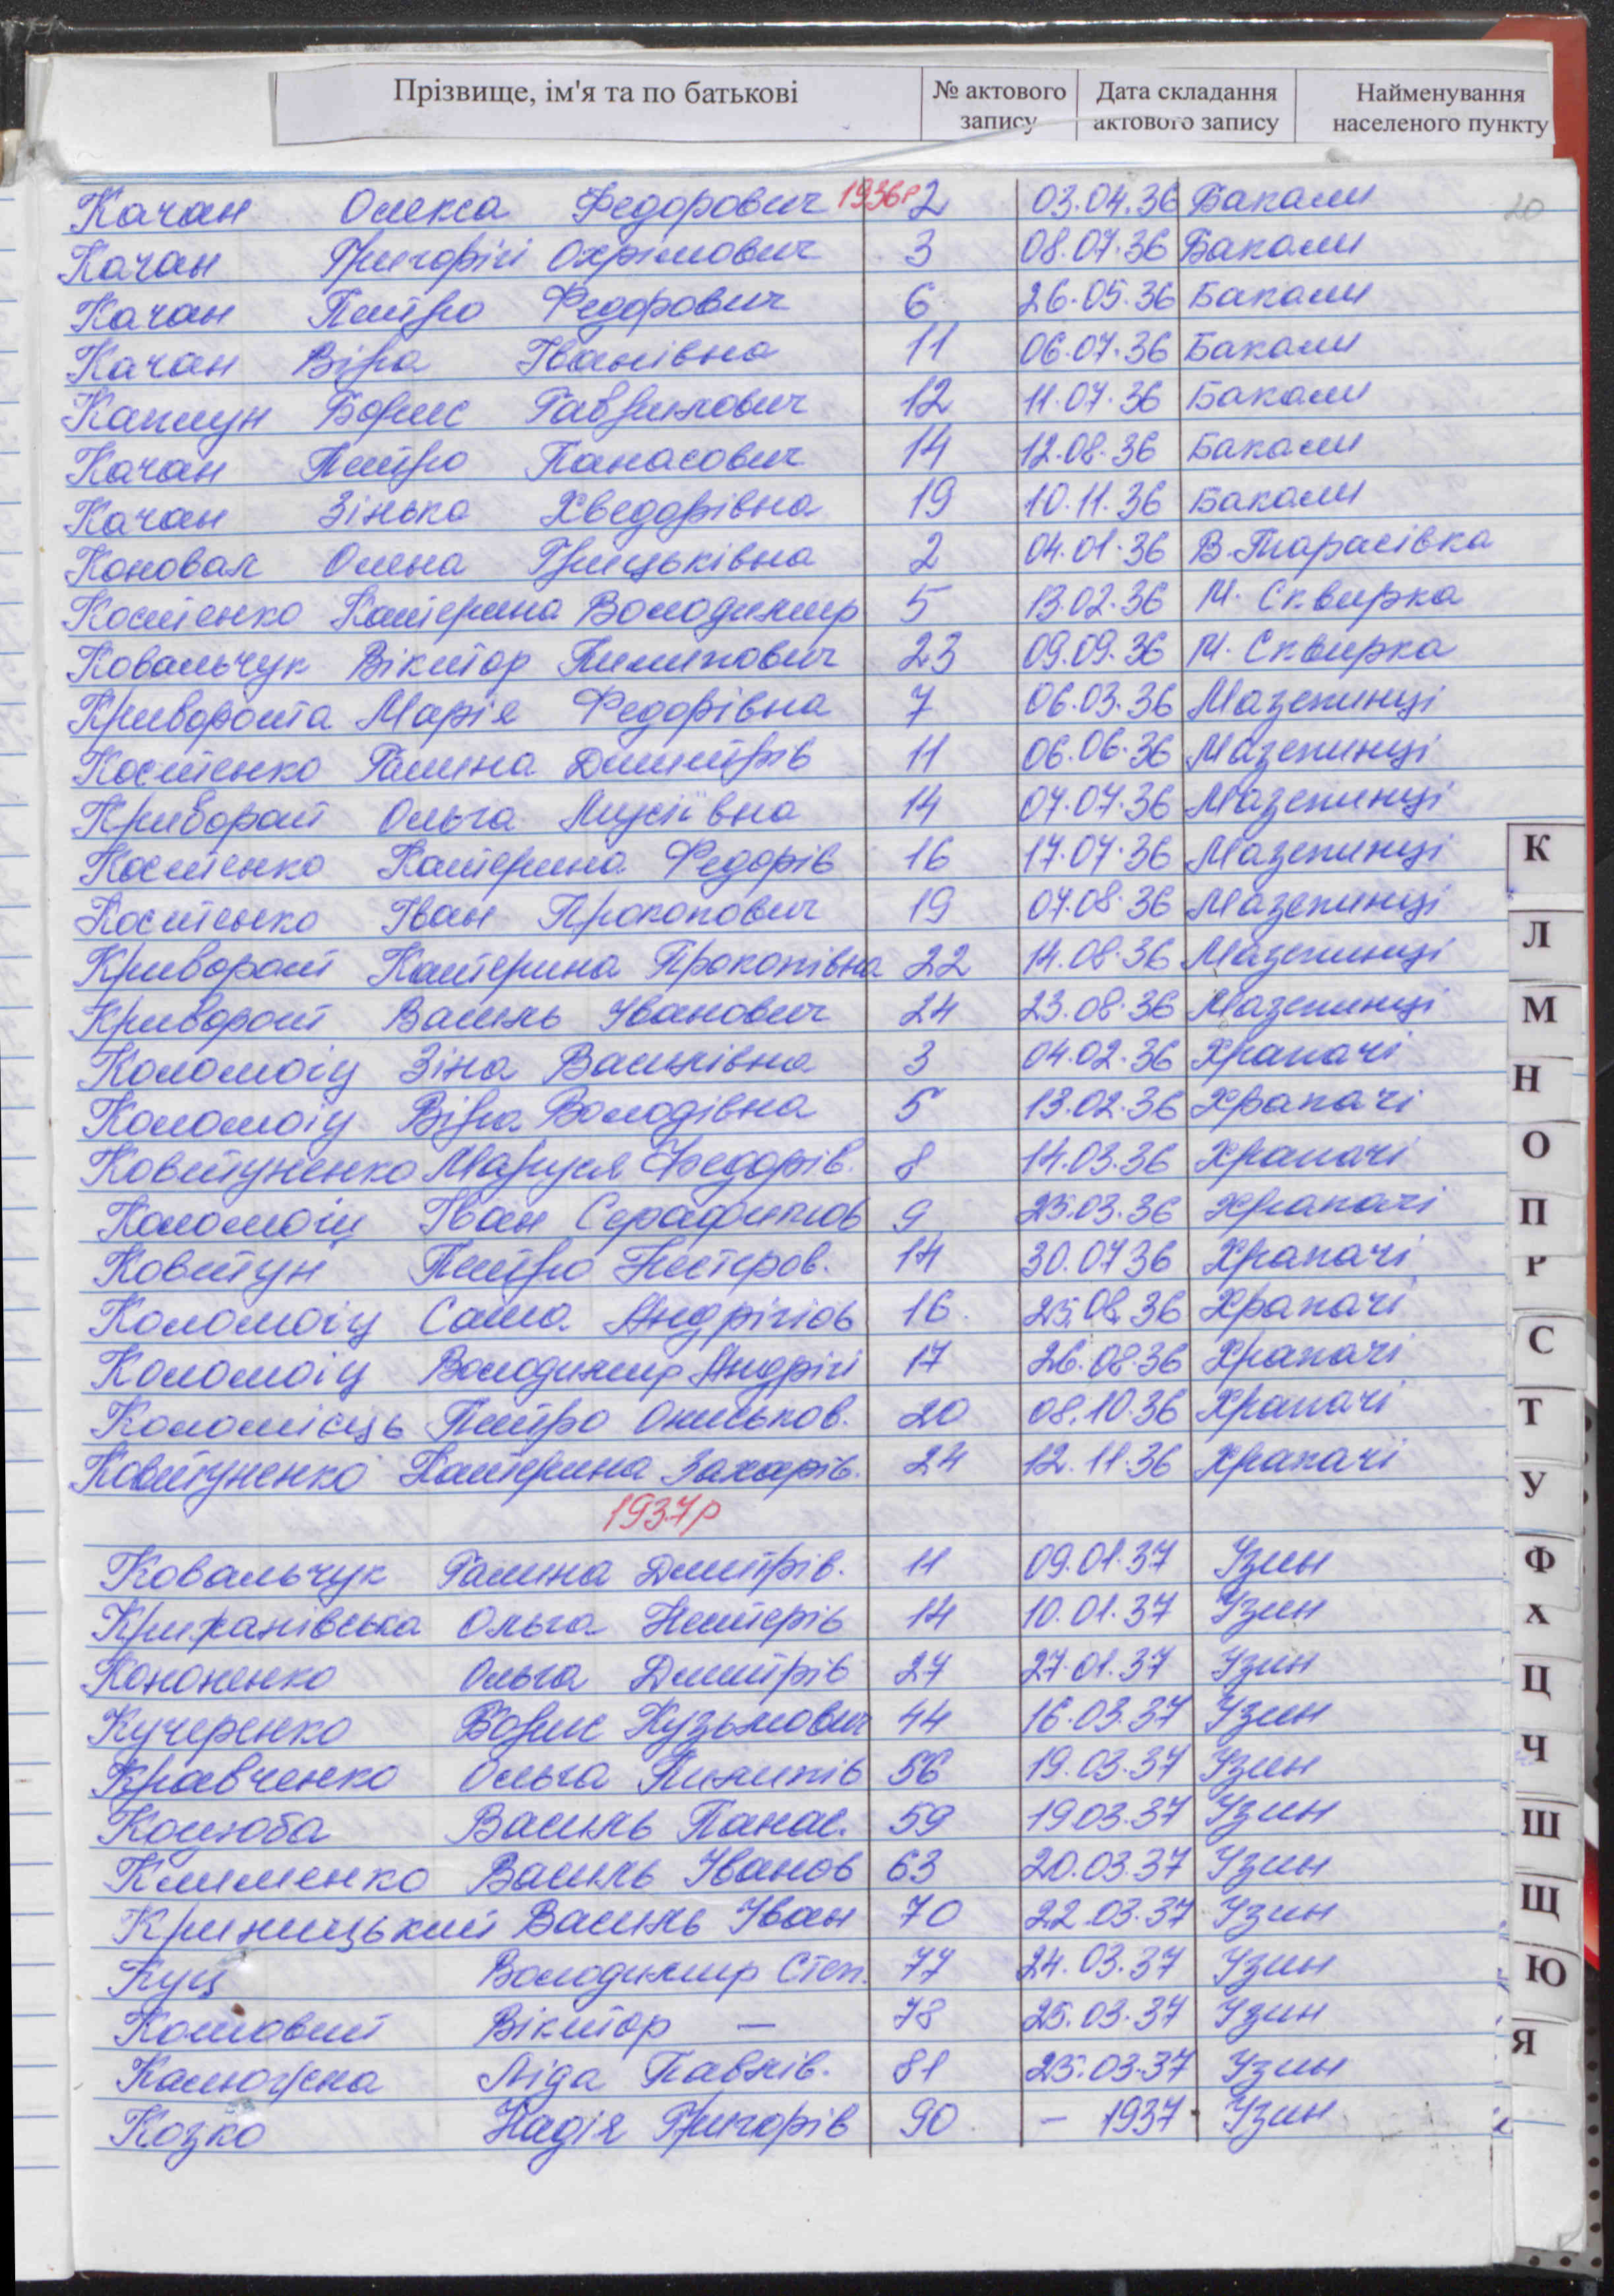 Прізвище, ім'я та по батькові № актового запису Дата складання актового запису Найменування населеного пункту
20
1936р
Качан Олекса Федорович 2 03.04.36 Бакали
Качан Григорій Охрімович 3 08.07.36 Бакали
Качан Петро Федорович 6 26.05.36 Бакали
Качан Віра Іванівна 11 06.07.36 Бакали
Капшун Борис Гаврилович 12 11.07.36 Бакали
Качан Петро Панасович 14 12.08.36 Бакали
Качан Зінька Хведорівна 19 10.11.36 Бакали
Коновал Олена Грицьківна 2 04.01.36 В.Тарасівка
Костенко Катерина Володимир 5 13.02.36 М. Сквирка
Ковальчук Віктор Пилипович 23 09.09.36 М. Сквирка
Криворота Марія Федорівна 7 06.03.36 Мазепинці
Костенко Галина Дмитрів 11 06.06.36 Мазепинці
Криворот Ольга Мусіївна 14 07.07.36 Мазепинці
Костенко Катерина Федорів 16 17.07.36 Мазепинці
Костенко Іван Прокопович 19 07.08.36 Мазепинці
Криворот Катерина Прокопівна 22 14.08.36 Мазепинці
Криворот Василь Іванович 24 23.08.36 Мазепинці
Коломоіц Зіна Василівна 3 04.02.36 Храпачі
Коломоіц Віра Володівна 5 13.02.36 Храпачі
Ковтуненко Маруся Федорів. 8 14.03.36 Храпачі
Коломоіц Іван Серафимов 9 25.03.36 Храпачі
Ковтун Петро Нестеров. 14 30.07.36 Храпачі
Коломоіц Саша Андрійов 16. 25.08.36 Храпачі
Коломоіц Володимир Андрій 17 26.08.36 Храпачі
Коломієць Петро Ониськов. 20 08.10.36 Храпачі
Ковтуненко Катерина Захарів. 24 12.11.36 Храпачі
1937р
Ковальчук Галина Дмитрів. 11 09.01.37 Узин
Крижанівська Ольга Нестерів 14 10.01.37 Узин
Кононенко Ольга Дмитрів 27 27.01.37 Узин
Кучеренко Борис Кузьмович 44 16.03.37 Узин
Кравченко Ольга Пилипів 56 19.03.37 Узин
Коцюба Василь Панас. 59 19.03.37 Узин
Клименко Василь Іванов 63 20.03.37 Узин
Криницький Василь Іван 70 22.03.37 Узин
Куц Володимир Степ. 77 24.03.37 Узин
Котовит Віктор — 78 25.03.37 Узин
Калюжна Ліда Павлів. 81 25.03.37 Узин
Козко Надія Григорів 90 — 1937 Узин
К
Л
М
Н
О
П
Р
С
Т
У
Ф
Х
Ц
Ч
Ш
Щ
Ю
Я